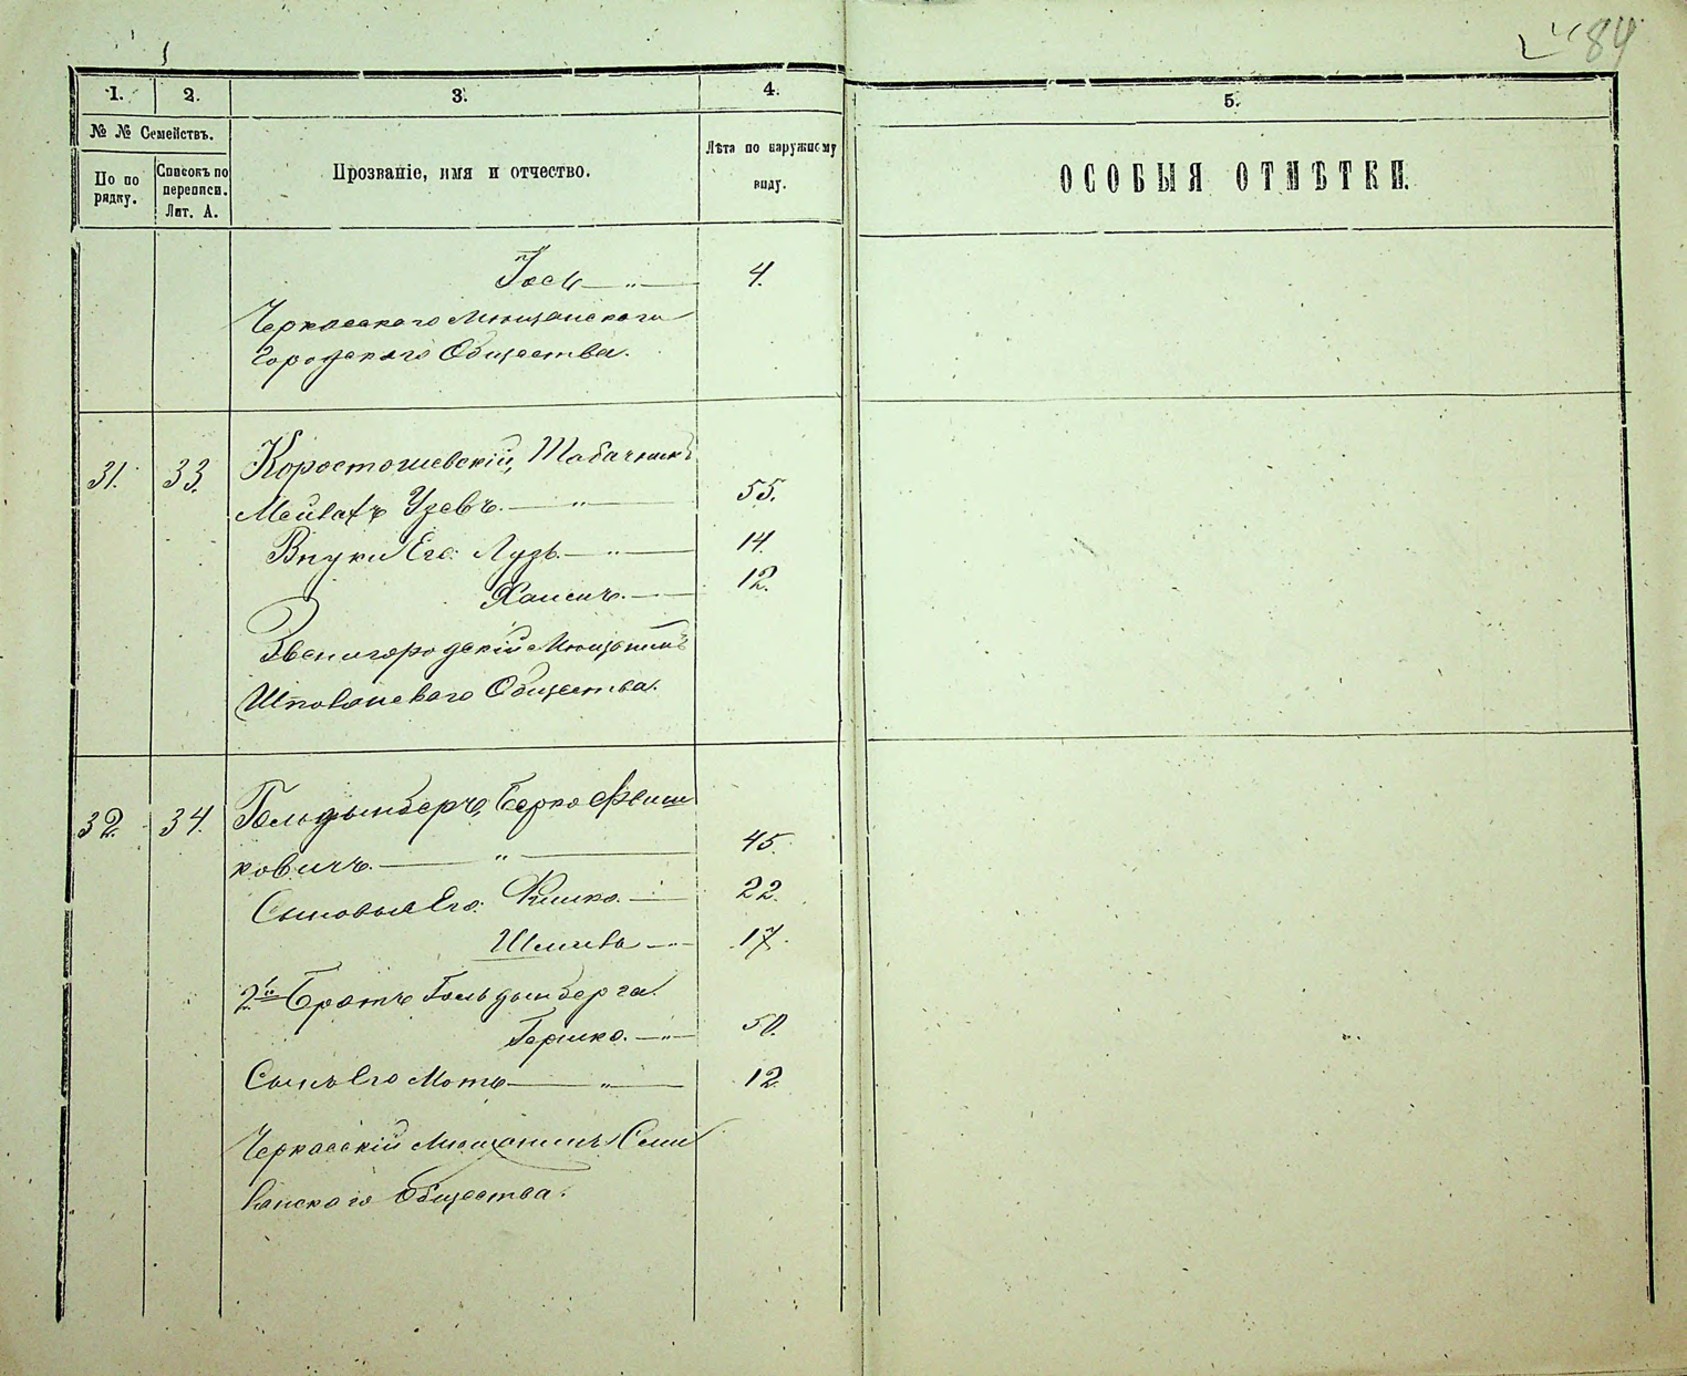 84
1. 2. 3. 4. 5.
№ № Семействъ.
По по рядку.
Списокъ по переписи. Лит. А.
Прозваніе, имя и отчество.
Лѣта по наружному виду.
ОСОБЫЯ ОТМѢТКИ.
Іось — „ — 4.
Черкасскаго Мѣщанскаго
Городскаго Общества.
31. 33. Коростошевскій, Табачникъ
Узевъ. — „ — 55.
Внуки Его: Лузь. — „ — 14.
Хаимъ. — 12.
Звенигородскій Мѣщанинъ
Шполянскаго Общества.
32. 34. Гольдынберъ, Берко Фиш
ковичъ. — „ — 45.
Сыновья Его: Фишко. — 22.
Шлиова — „ — 17.
2й Братъ Гольдынберга
Гершко. — „ — 50.
Сынъ Его Мотъ — „ — 12.
Черкасскій Мѣщанинъ Сми
лянскаго Общества.